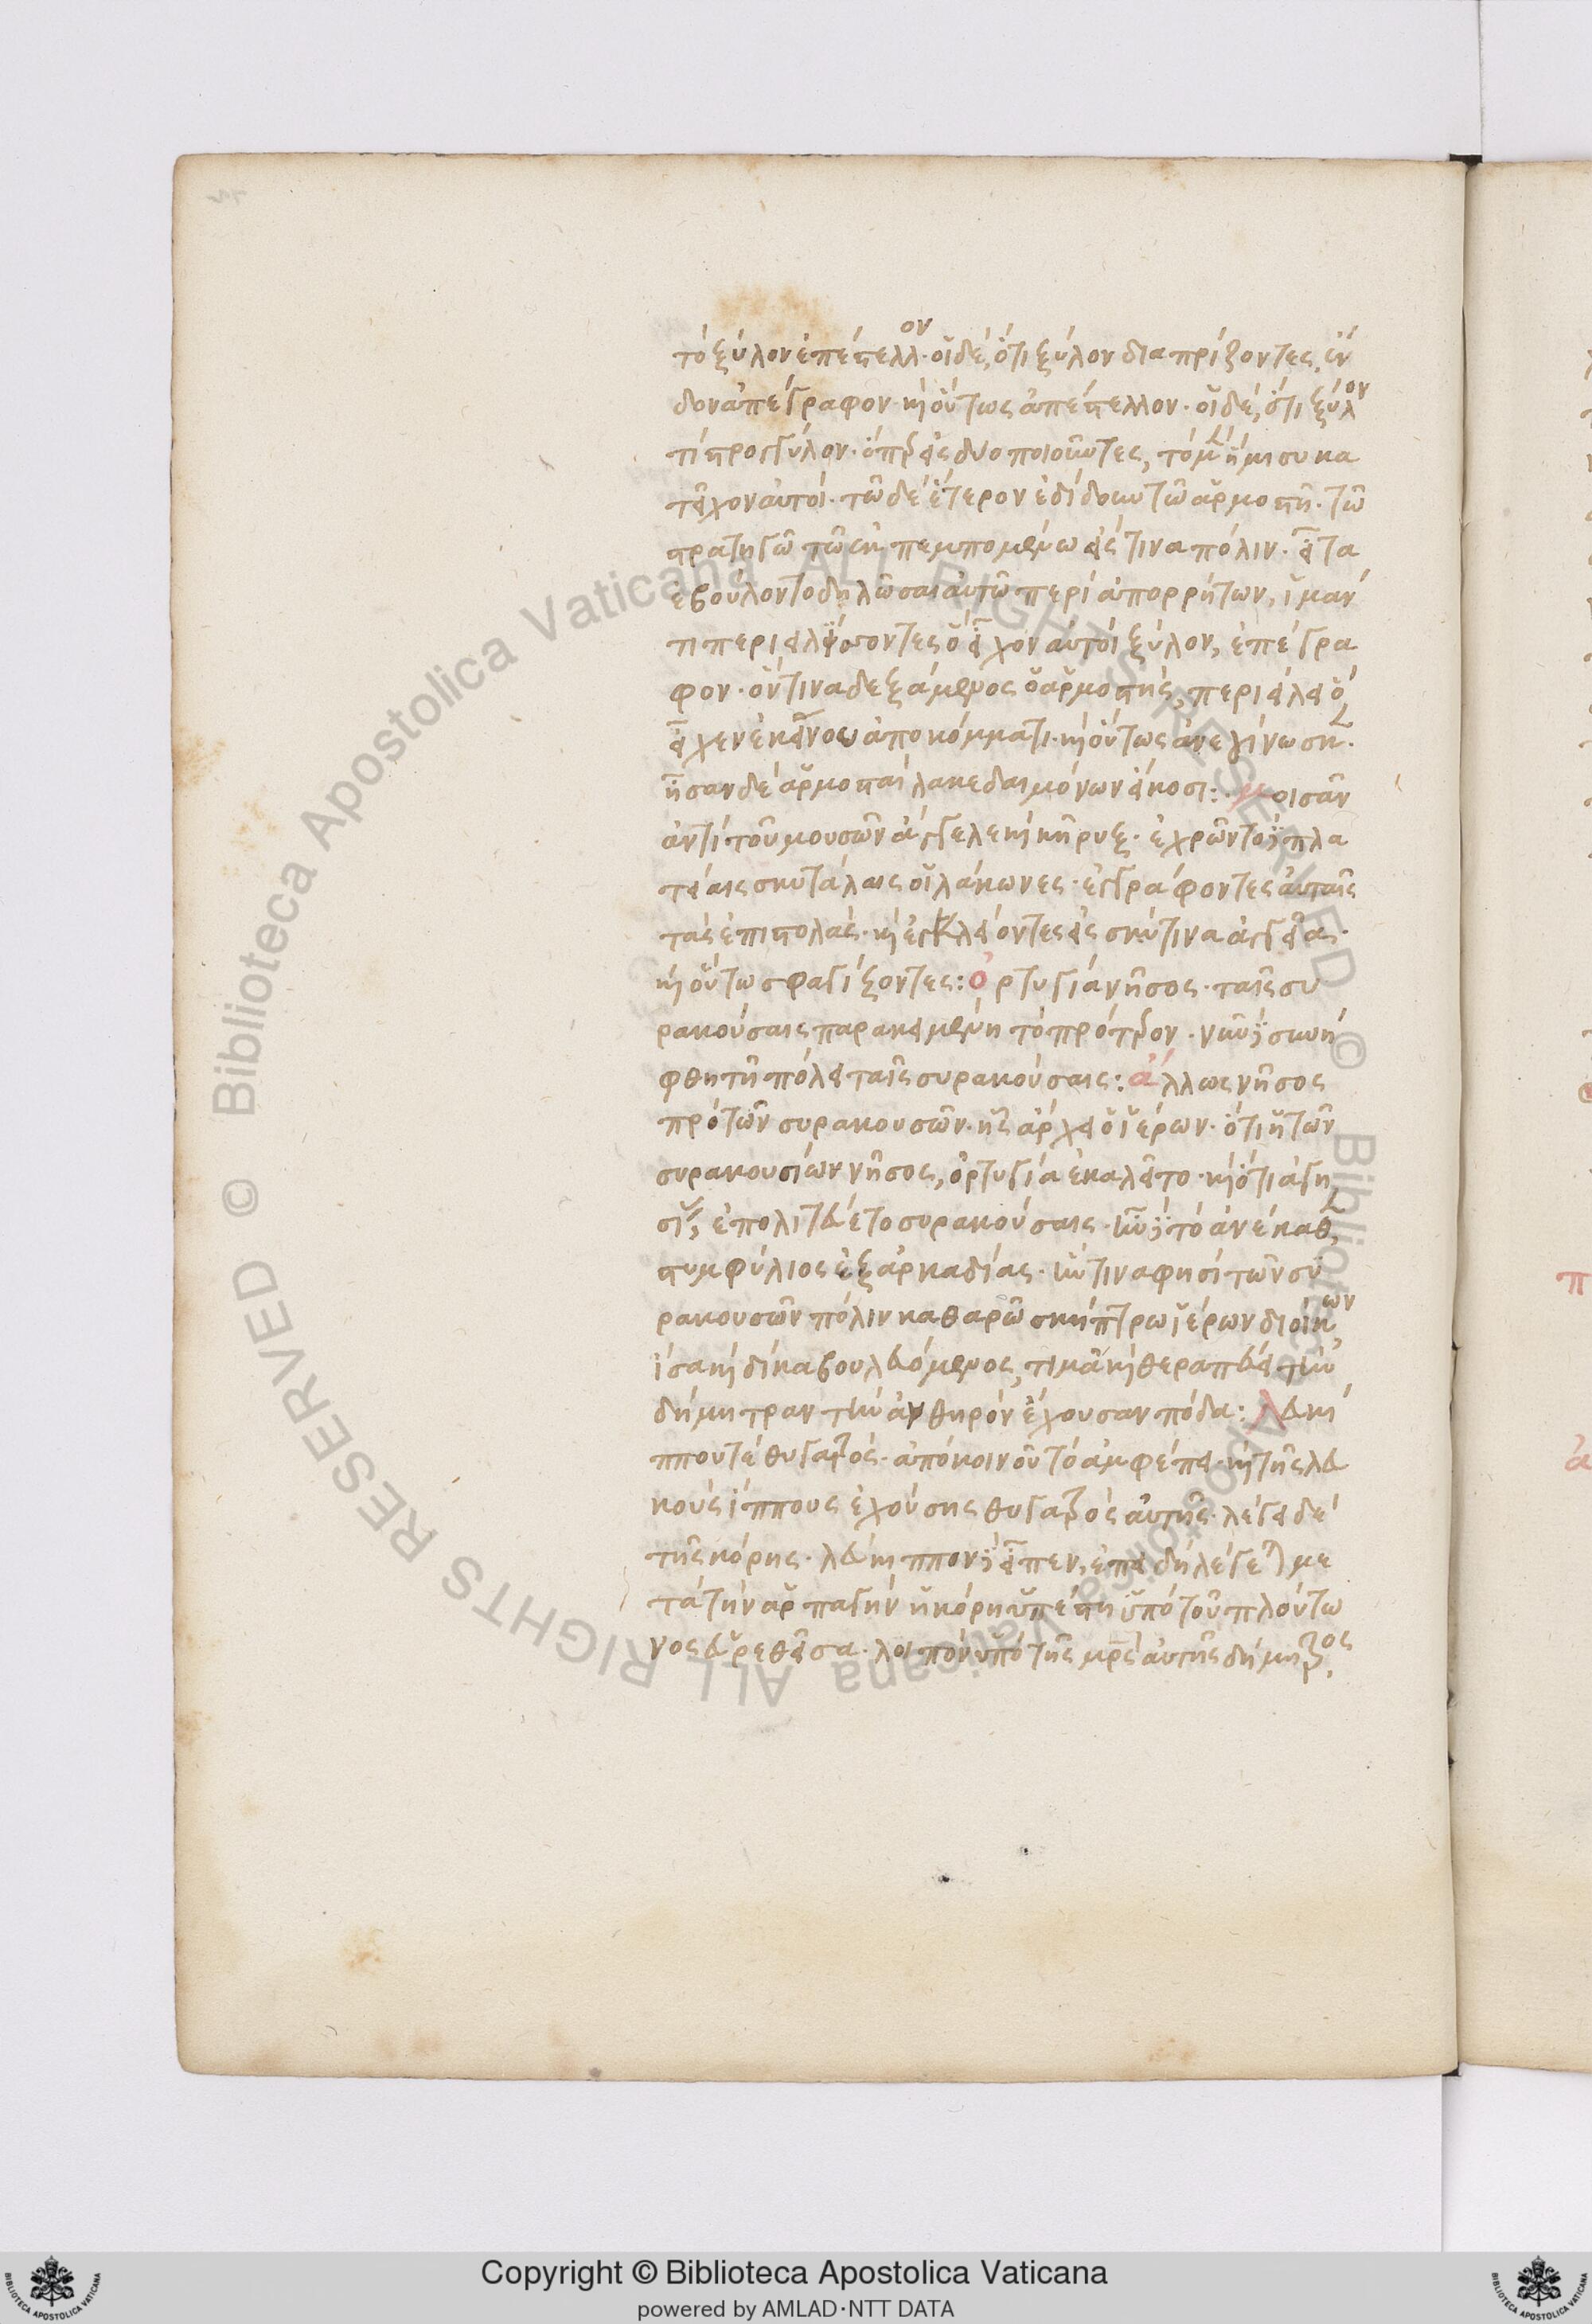 τὸ ξύλον ἐπέστελλον· οἱ δὲ, ὅτι ξύλον διαπρίζοντες, ἔν
δον ἀπέγραφον· καὶ οὕτως ἀπέστελλον· οἱ δὲ, ὅτι ξύλον
τὶ στρογγύλον· ὅπερ εἰς δύο ποιοῦντες, τὸ μὲν ἥμισυ κα
τεῖχον αὐτοί· τῶ δὲ ἕτερον ἐδίδουν τῶ ἁρμοστῆ· τῶ
στρατηγῶ τῶ ἐκπεμπομένω εἰς τινα πόλιν· εἶτα
ἐβούλοντο δηλῶσαι αὐτῶ περὶ ἀπορρήτων, ἱμάν
τι περιειλήσοντες ὃ εἶχον αὐτοὶ ξύλον, ἐπέγρα
φον· ὅντινα δεξάμενος ὁ ἁρμοστὴς, περιείλει ὃ
εἶχεν ἐκεῖνος ἀποκόμματι· καὶ οὕτως ἀνεγίνωσκεν·
ἦσαν δὲ ἁρμοσταὶ λακεδαιμόνων εἴκοσι: μοισᾶν
ἀντὶ τοῦ μουσῶν ἄγγελε καὶ κῆρυξ· ἐχρῶντο γὰρ πλα
τείαις σκυτάλαις οἱ λάκωνες· ἐγγράφοντες αὐταῖς
τὰς ἐπιστολάς· καὶ ἐγκλείοντες εἰς σκύτινα ἀγγεῖα·
καὶ οὕτω σφραγίζοντες: ὀρτυγία νῆσος· ταῖς συ
ρακούσαις παρακειμένη τὸ πρότερον· νῦν γὰρ συνή
φθη τῆ πόλει ταῖς συρακούσαις: ἄλλως νῆσος
πρὸ τῶν συρακουσῶν· ἧς ἄρχει ὁ ἱέρων· ὅτι ἡ τῶν
συρακουσίων νῆσος, ὀρτυγία ἐκαλεῖτο· καὶ ὅτι ἀγη
σίας ἐπολιτεύετο συρακούσαις· ἦν γὰρ τὸ ἀνέκαθεν
στυμφύλιος ἐξ ἀρκαδίας· ἥντινα φησὶ τῶν συ
ρακουσῶν πόλιν καθαρῶ σκήπτρω ἱέρων διοικῶν
ἴσα καὶ δίκαια βουλευόμενος, τιμᾶ καὶ θεραπεύει τὴν
δήμητραν τὴν ἀνθηρὸν ἔχουσαν πόδα: λευκί
ππου τε θυγατρός· ἀπὸ κοινοῦ τὸ ἀμφέπει· καὶ τῆς λευ
κοὺς ἵππους ἐχούσης θυγατρὸς αὐτῆς· λέγει δὲ
τῆς κόρης· λεύκιππον γὰρ εἶπεν, ἐπεὶ δὴ λέγεται με
τὰ τὴν ἁρπαγὴν ἡ κόρη ὑπέστη ὑπὸ τοῦ πλούτω
νος εὑρεθεῖσα· λοιπὸν ὑπὸ τῆς μρς αὐτῆς δήμητρος,